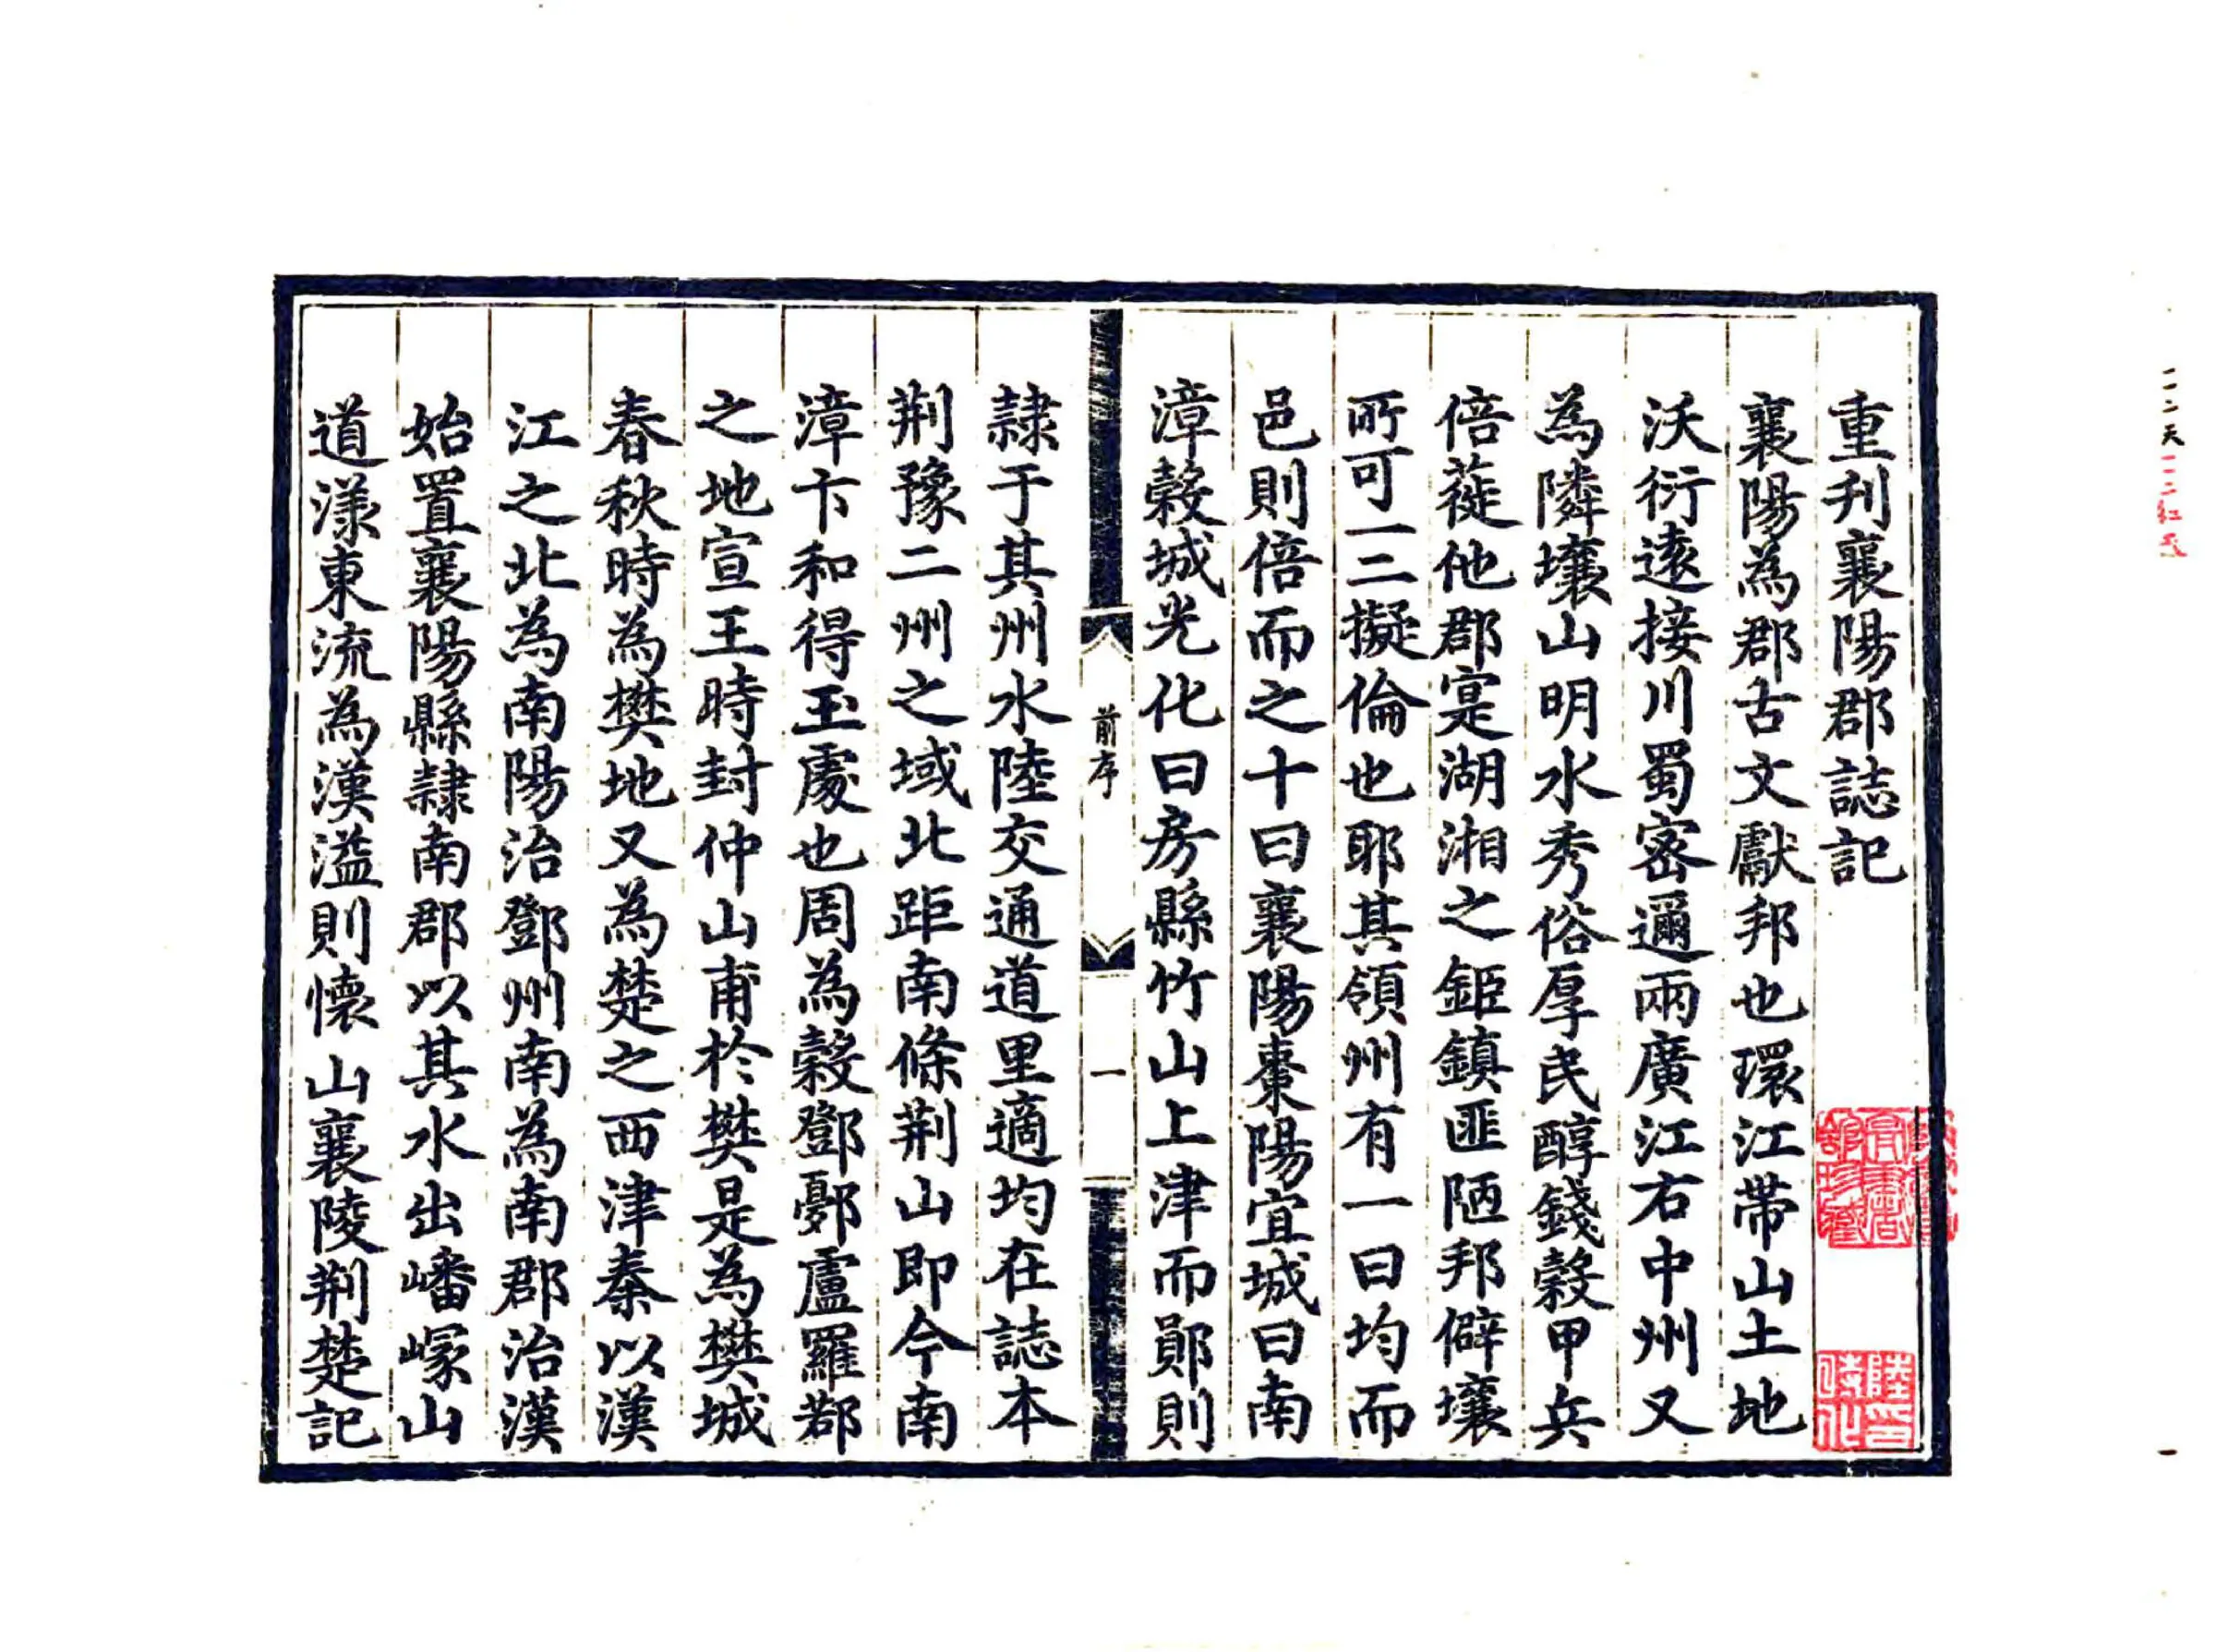 重刋襄陽郡誌記
襄陽為郡古文獻邦也環江帶山土地
沃衍遠接川蜀密邇兩廣江右中州又
為隣壤山明水秀俗厚民醇錢穀甲兵
倍蓰他郡寔湖湘之鉅鎮匪陋邦僻壤
所可一二擬倫也耶其領州有一曰均而
邑則倍而之十曰襄陽棗陽宜城曰南
漳穀城光化曰房縣竹山上津而鄖則
隷于其州水陸交通道里適均在誌本
荆豫二州之域北距南條荆山即今南
漳卞和得玉處也周為穀鄧鄾盧羅鄀
之地宣王時封仲山甫於樊是為樊城
春秋時為樊地又為楚之西津秦以漢
江之北為南陽治鄧州南為南郡治漢
始置襄陽縣隷南郡以其水出嶓嶓山
道漾東流為漢溢則懷山襄陵荆楚記
前序
一